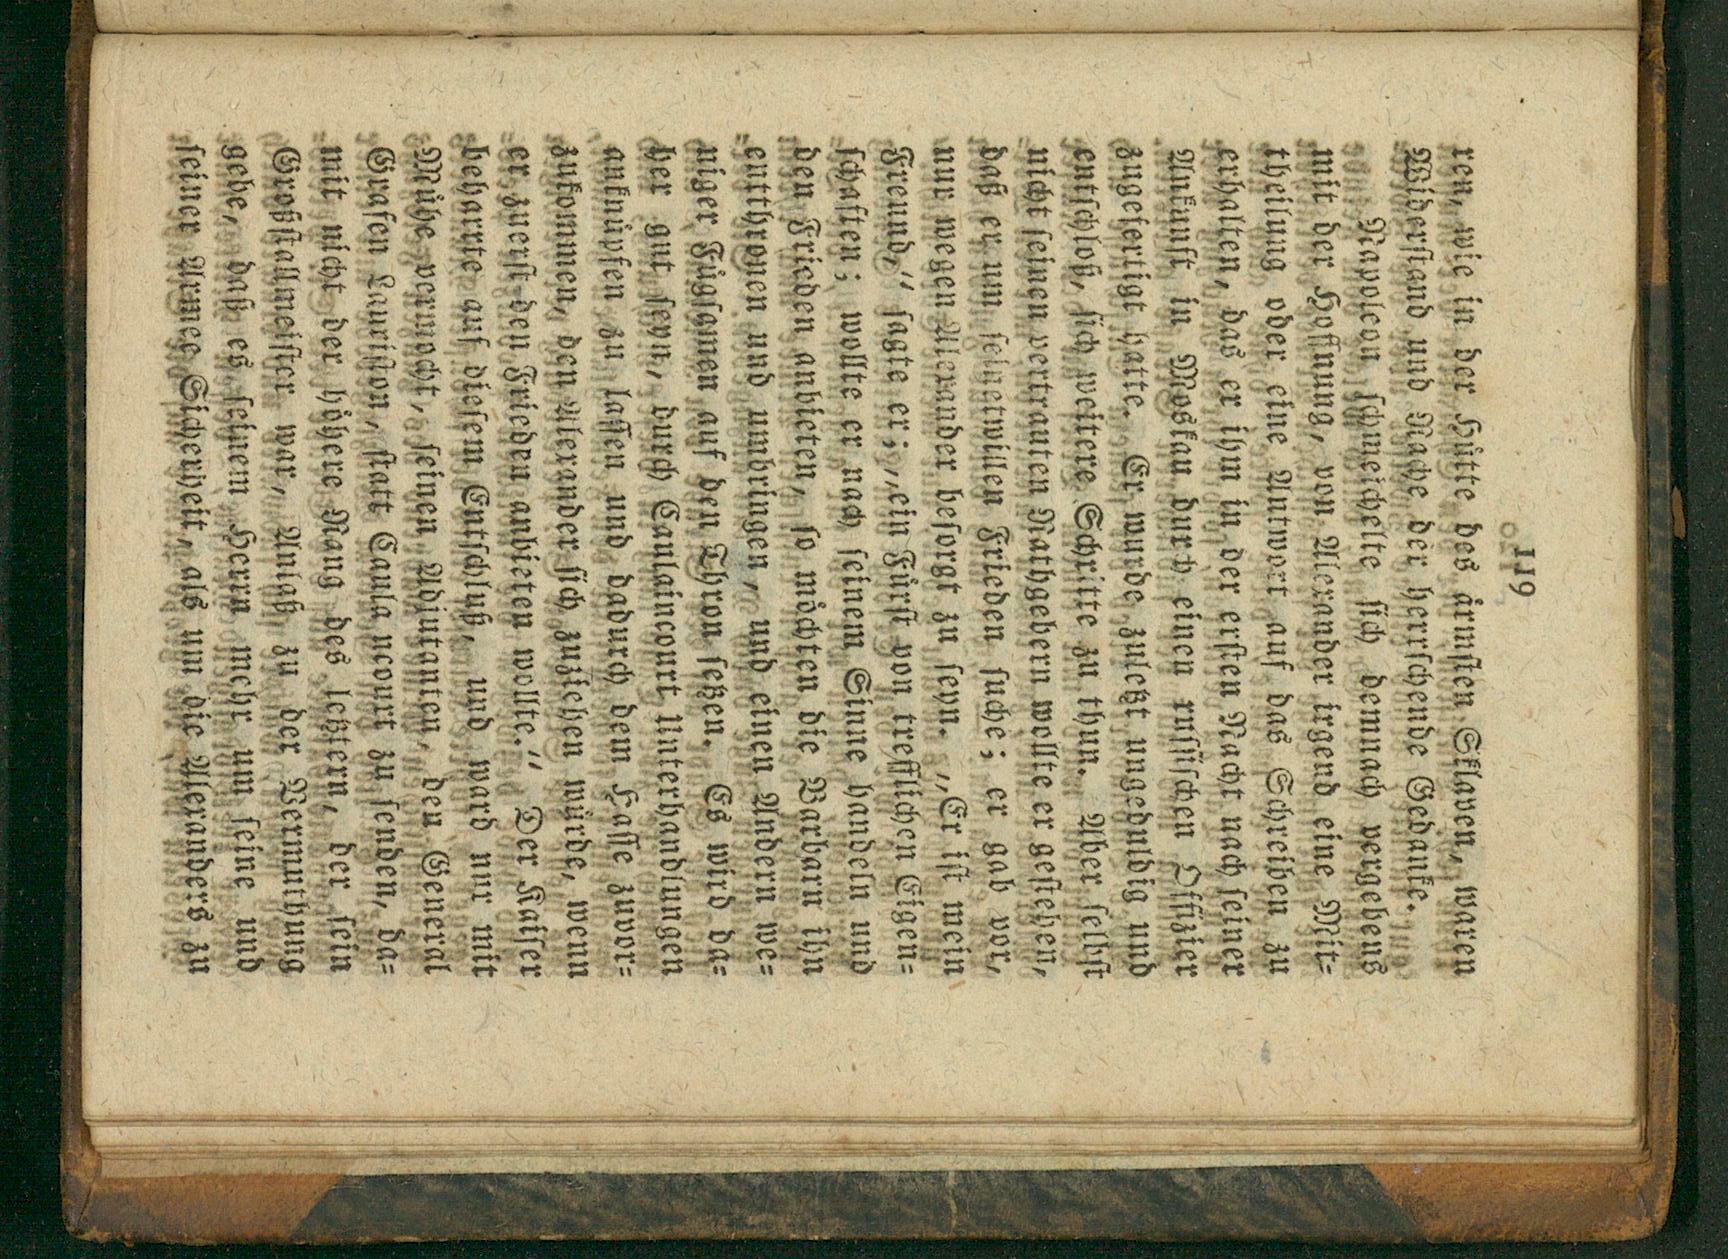 119
ren, wie in der Hütte des ärmsten Sklaven, waren
Widerstand und Rache der herrschende Gedanke.
Napoleon schmeichelte sich demnach vergebens
mit der Hoffnung, von Alexander irgend eine Mit=
theilung oder eine Antwort auf das Schreiben zu
erhalten, das er ihm in der ersten Nacht nach seiner
Ankunft in Moskau durch einen russischen Offizier
zugefertigt hatte. Er wurde zuletzt ungeduldig und
entschloß, sich weitere Schritte zu thun. Aber selbst
nicht seinen vertrauten Rathgebern wollte er gestehen,
daß er um seinetwillen Frieden suche; er gab vor,
nur wegen Alexander besorgt zu seyn. „Er ist mein
Freund,“ sagte er; „ein Fürst von trefflichen Eigen=
schaften; wollte er nach seinem Sinne handeln und
den Frieden anbieten, so möchten die Barbarn ihn
entthronen und umbringen, und einen Andern we=
niger Fügsamen auf den Thron setzen. Es wird da=
her gut seyn, durch Caulaincourt Unterhandlungen
anknüpfen zu lassen und dadurch dem Hasse zuvor=
zukommen, den Alexander sich zuziehen würde, wenn
er zuerst den Frieden anbieten wollte.“ Der Kaiser
beharrte auf diesem Entschluß, und ward nur mit
Mühe vermocht, seinen Adjutanten, den General
Grafen Lauriston, statt Caulaincourt zu senden, da=
mit nicht der höhere Rang des letztern, der sein
Großstallmeister war, Anlaß zu der Vermuthung
gebe, daß es seinem Herrn mehr um seine und
seiner Armee Sicherheit, als um die Alexanders zu